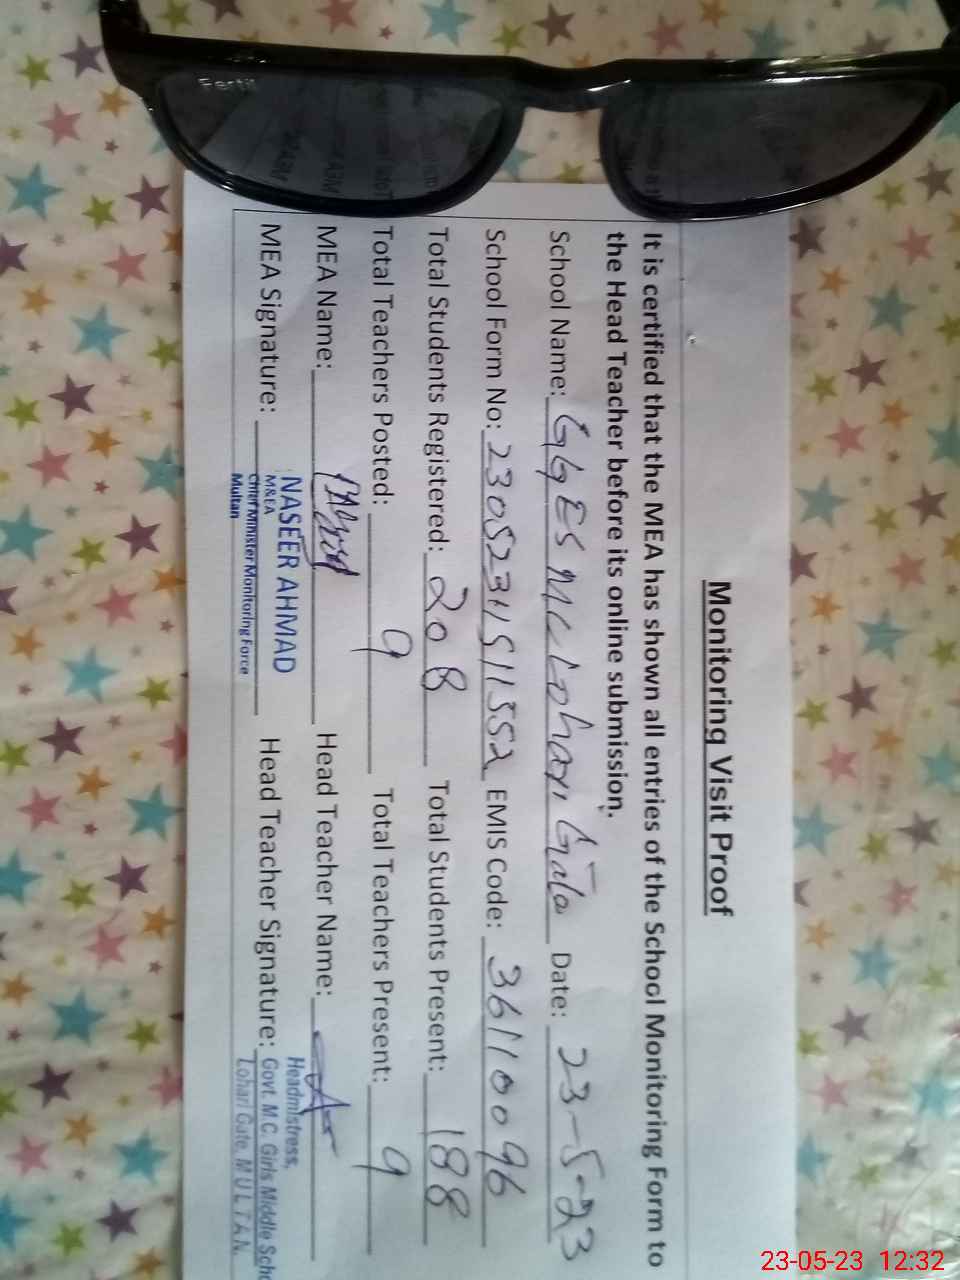 Fertit
Monitoring Visit Proof
It is certified that the MEA has shown all entries of the School Monitoring Form to
the Head Teacher before its online submission.
School Name: GGES MC Lohari Gate Date: 23-5-23
School Form No: 230523151552 EMIS Code: 36110096
Total Students Registered: 208 Total Students Present: 188
Total Teachers Posted: 9 Total Teachers Present: 9
MEA Name: Head Teacher Name:
MEA Signature: Head Teacher Signature:
NASEER AHMAD
M&EA
Chief Minister Monitoring Force
Multan
Headmistress,
Govt. M.C. Girls Middle Scho
Lohari Gate, MULTAN.
23-05-23 12:32